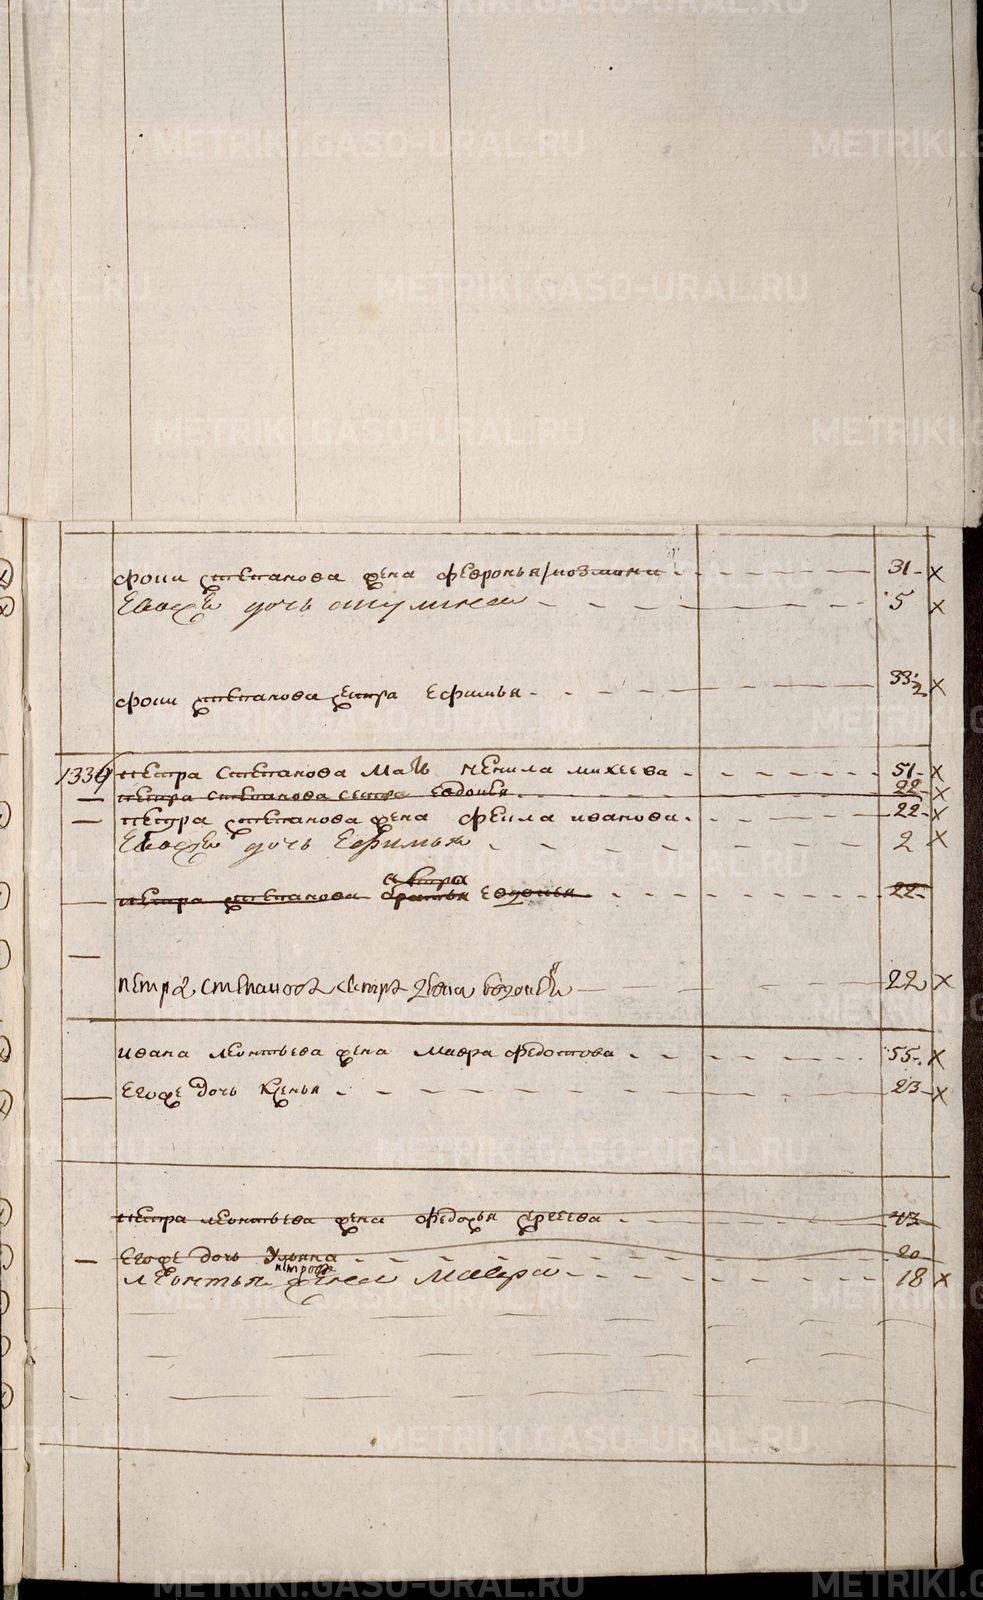 METRIKI.GASO-URAL.RU
фоки степанова жена февронья 31 х
дочь акулина 5 х
фоки степанова сестра Ефимья 33½ х
1339 петра степанова мать ненила михеева 51 х
петра степанова сестра Евдокея 22 х
петра степанова жена фекла иванова 22 х
дочь Ефимья 2 х
петра степанова 22
петра степанова сестра 22 х
ивана леонтьева жена мавра федотова 55 х
Егоже дочь Ксенья 23 х
петра леонтьева жена федосья сергеева 43
Егоже дочь Ульяна 20
леонтья петрова жена мавра 18 х